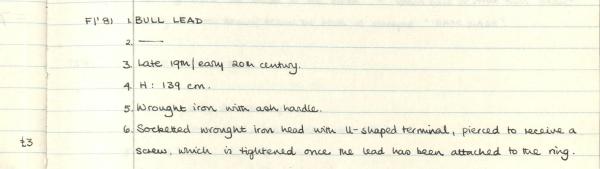 F1'81 1. BULL LEAD
2. —
3. Late 19th/early 20th century.
4. H: 139 cm.
5. Wrought iron with ash handle.
6. Socketed wrought iron head with U-shaped terminal, pierced to receive a
£3 screw, which is tightened once the lead has been attached to the ring.